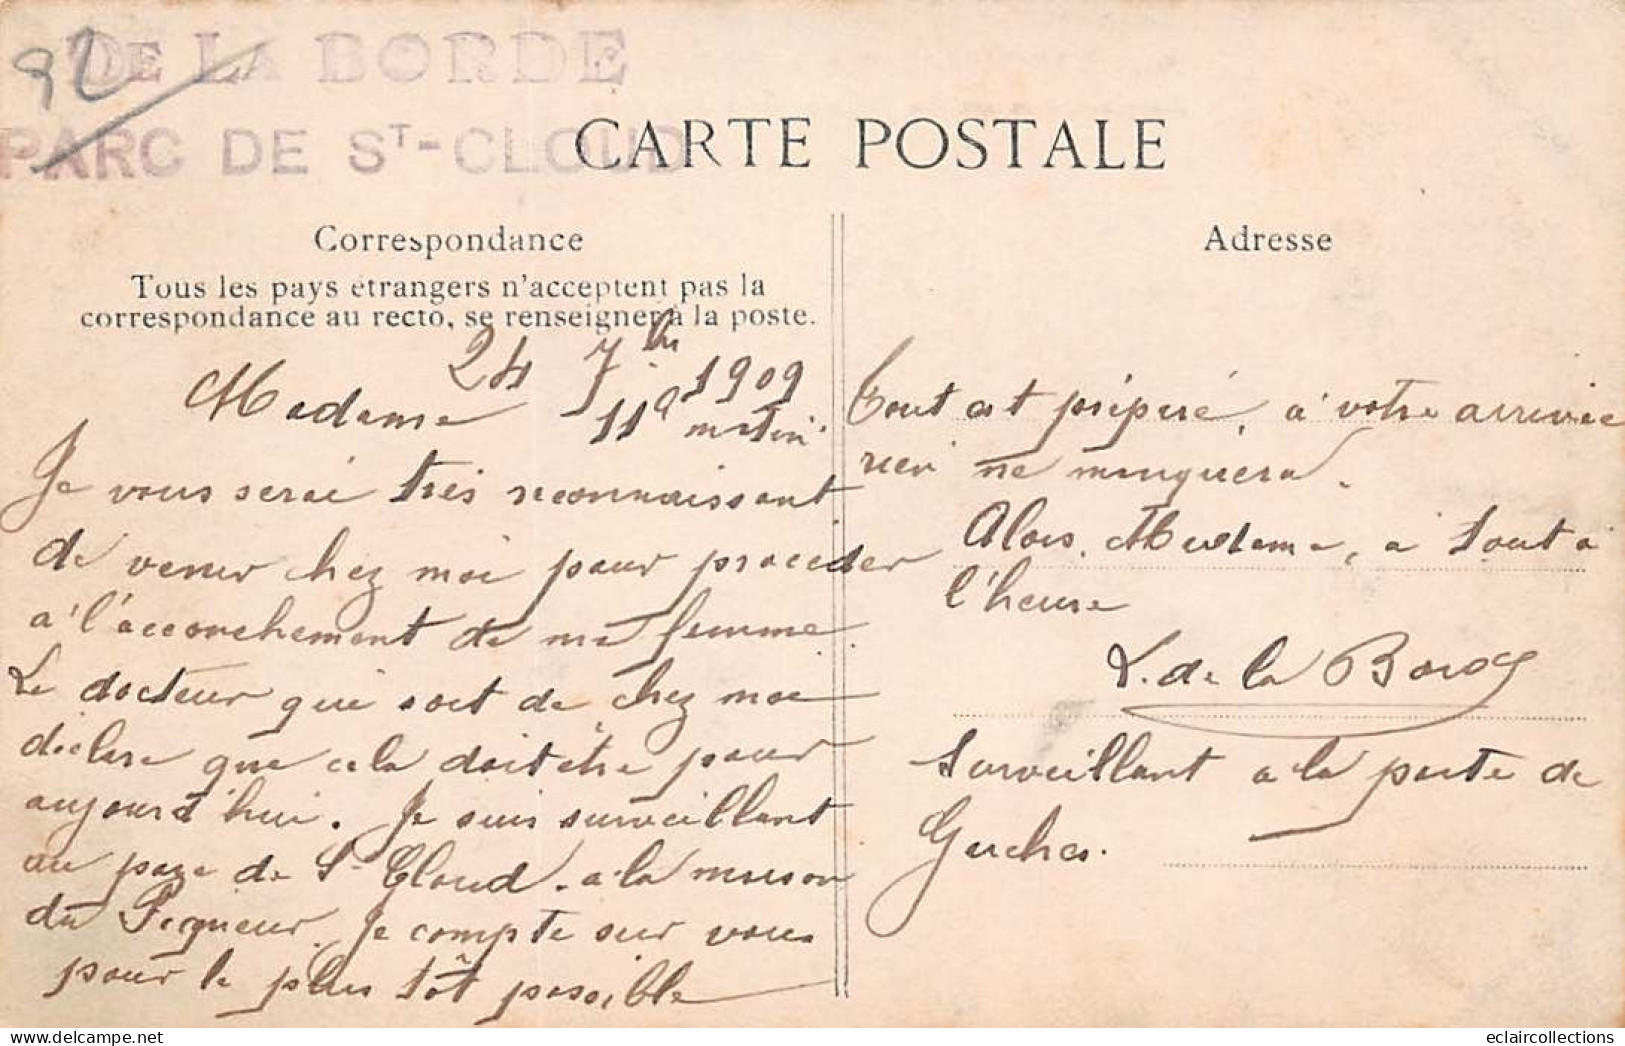 92
DE LA BORDE
PARC DE ST-CLOUD
CARTE POSTALE
Correspondance
Tous les pays étrangers n'acceptent pas la
correspondance au recto, se renseigner à la poste.
24 7bre 1909
Madame 11h matin
Je vous serai très reconnaissant
de venir chez moi pour procéder
a l'accouchement de ma femme.
Le docteur qui sort de chez moi
déclare que cela doit être pour
aujourd'hui. Je suis surveillant
au parc de St Cloud. a la maison
du Piqueur. Je compte sur vous
pour le plus tôt possible
Adresse
Tout est préparé, à votre arrivée
rien ne manquera.
Alors, Madame, a tout a
l'heure
L. de la Borde
Surveillant a la porte de
Garches.
eclaircollections
www.delcampe.net